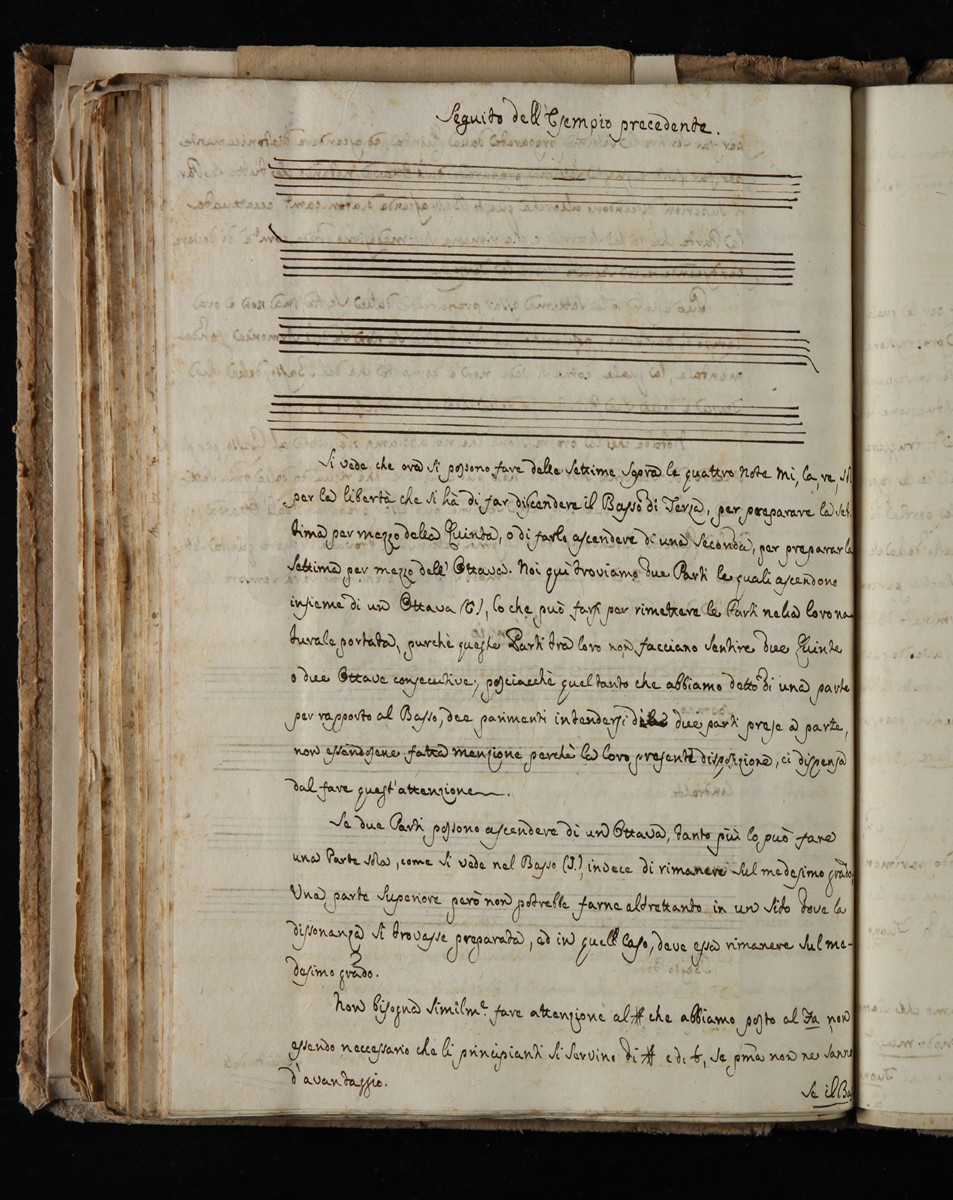 Seguito dell'Esempio precedente.
Si vede che ora si possono fare delle settime sopra le quattro note mi, la, re, sol
per la libertà che si hà di far discendere il Basso di Terza, per preparare la set:
tima per mezzo della Quinta, o di farlo ascendere di una Seconda, per preparar la
settima per mezzo dell'Ottava. Noi quì troviamo due Parti le quali ascendono
insieme di un Ottava lo che può farsi per rimettere le Parti nella loro na
turale portata, purchè queste Parti tra loro non facciano sentire due Quinte
o due Ottave consecutive; posciacchè quel tanto che abbiamo detto di una parte
per rapporto al Basso, dee parimenti intendersi di due parti prese a parte,
non essendosene fatta menzione perchè la loro presente disposizione, ci dispensa
dal fare quest'attenzione.
Se due Parti possono ascendere di un Ottava, tanto più lo può fare
una Parte sola, come si vede nel Basso (J.), invece di rimanere sul medesimo grado.
Una parte superiore però non potrebbe farne altrettanto in un sito dove la
dissonanza si trovasse preparata, ed in quel caso, deve essa rimanere sul me-
desimo grado.
Non bisogna similmte. fare attenzione al # che abbiamo posto al Fa non
essendo neccessario che li principianti si servino di # e di b, se pma non ne sanno
d'avantaggio.
Se il Ba